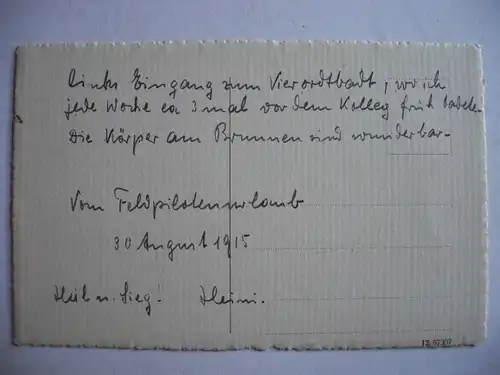 Links Eingang zum Vierordtbadt, wo ich
jede Woche ca 3 mal vor dem Kolleg früh badete.
Die Körper am Brunnen sind wunderbar-
Vom Feldpilotenurlaub
30 August 1915
Heil u. Sieg! Heini.